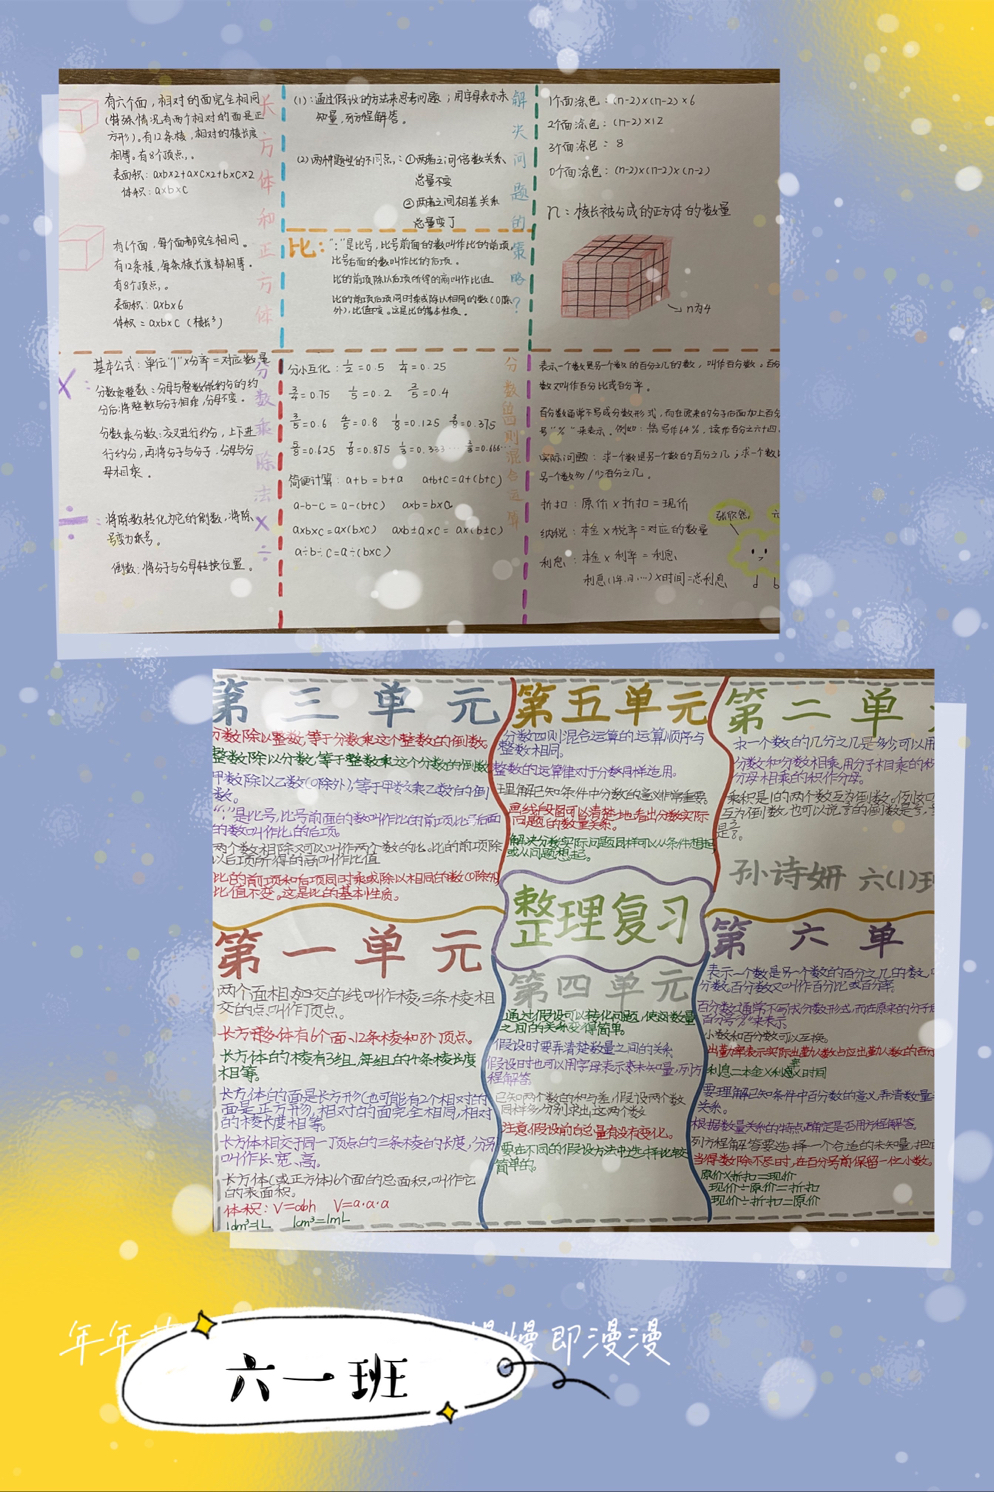 长方体和正方体
有六个面，相对的面完全相同
(特殊情况有两个相对的面是正
方形)。有12条棱，相对的棱长度
相等。有8个顶点。
表面积：a×b×2+a×c×2+b×c×2
体积：a×b×c
有6个面，每个面都完全相同。
有12条棱，每条棱长度都相等。
有8个顶点。
表面积：a×b×6
体积=a×b×c（棱长³）
解决问题的策略？
(1)：通过假设的方法来思考问题；用字母表示未
知量，列方程解答。
(2)两种题型的不同点：①两者之间倍数关系，
总量不变
②两者之间相差关系
总量变了
比：
":"是比号，比号前面的数叫作比的前项，
比号后面的数叫作比的后项。
比的前项除以后项所得的商叫作比值
比的前项后项同时乘或除以相同的数(0除
外)，比值不变。这是比的基本性质。
1个面涂色：(n-2)×(n-2)×6
2个面涂色：(n-2)×12
3个面涂色：8
0个面涂色：(n-2)×(n-2)×(n-2)
n：棱长被分成的正方体的数量
n为4
分数乘除法
×
÷
×：
基本公式：单位"1"×分率=对应数量
分数乘整数：分母与整数能约分的约
分后，将整数与分子相乘，分母不变。
分数乘分数：交叉进行约分，上下进
行约分，再将分子与分子，分母与分
母相乘。
÷：
将除数转化为它的倒数，将除
号变为乘号。
倒数：将分子与分母转换位置。
分数四则混合运算
分小互化：1/2=0.5 1/4=0.25
3/4=0.75 1/5=0.2 2/5=0.4
3/5=0.6 4/5=0.8 1/8=0.125 3/8=0.375
5/8=0.625 7/8=0.875 1/3=0.333… 2/3=0.666…
简便计算：a+b=b+a a+b+c=a+(b+c)
a-b-c=a-(b+c) a×b=b×a
a×b×c=a×(b×c) a×b±a×c=a×(b±c)
a÷b÷c=a÷(b×c)
表示一个数是另一个数的百分之几的数，叫作百分数。百分
数又叫作百分比或百分率。
百分数通常不写成分数形式，而在原来的分子后面加上百分
号"%"来表示。例如：64%，读作百分之六十四。
实际问题：求一个数是另一个数的百分之几；求一个数比
另一个数多/少百分之几。
折扣：原价×折扣=现价
纳税：本金×税率=对应的数量
利息：本金×利率=利息
利息(1年,月…)×时间=总利息
第三单元
分数除以整数，等于分数乘这个整数的倒数。
整数除以分数，等于整数乘这个分数的倒数
甲数除以乙数(0除外)，等于甲数乘乙数的倒
数。
":"是比号，比号前面的数叫作比的前项，比号后面
的数叫作比的后项。
两个数相除又可以叫作两个数的比。比的前项除
以后项所得的商叫作比值
比的前项和后项同时乘或除以相同的数(0除外)
比值不变。这是比的基本性质。
第五单元
分数四则混合运算的运算顺序与
整数相同。
整数的运算律对于分数同样适用。
理解已知条件中分数的意义非常重要。
画线段图可以清楚地看出分数实际
问题的数量关系。
解决分数实际问题同样可以从条件想起
或从问题想起。
第二单
求一个数的几分之几是多少可以用
分数和分数相乘，用分子相乘的积
分母相乘的积作分母。
乘积是1的两个数互为倒数。
孙诗妍 六(1)班
整理复习
第一单元
两个面相交的线叫作棱，三条棱相
交的点叫作顶点。
长方体有6个面、12条棱和8个顶点。
长方体的棱有3组，每组的4条棱长度
相等。
长方体的面是长方形(也可能有2个相对的
面是正方形)，相对的面完全相同，相对
的棱长度相等。
长方体相交于同一顶点的三条棱的长度，分别
叫作长、宽、高。
长方体(或正方体)6个面的总面积，叫作它
的表面积。
体积：V=abh V=a·a·a
1dm³=1L 1cm³=1mL
第四单元
通过假设可以转化问题，使数量
之间的关系变得简单。
假设时要弄清楚数量之间的关系
假设时也可以用字母表示未知量，列方
程解答
已知两个数的和与差，假设两个数
同样多，分别求出这两个数
注意假设前后总量有没有变化。
要在不同的假设方法中选择比较
简单的。
第六单
表示一个数是另一个数的百分之几的数，
分数。百分数又叫作百分比或百分率。
百分数通常不写成分数形式，而在原来的分子后
百分号"%"来表示。
小数和百分数可以互换。
出勤率表示实际出勤人数占应出勤人数的百分
利息=本金×利率×时间
要理解已知条件中百分数的意义，弄清数量
关系。
根据数量关系的特点，确定是否用方程解答。
列方程解答要选择一个合适的未知量，把
当得数除不尽时，在百分号前保留一位小数。
原价×折扣=现价
现价÷原价=折扣
现价÷折扣=原价
年年 慢即漫漫
六一班